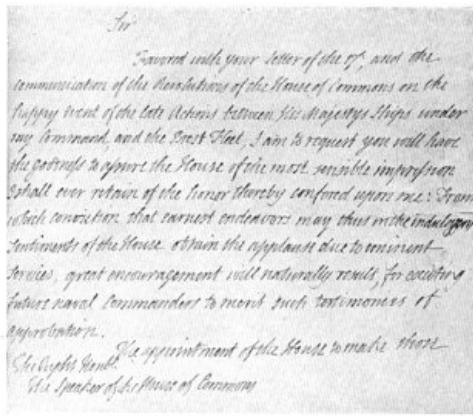 Sir
Favored with your Letter of the 7th, and the
communication of the Resolutions of the House of Commons on the
happy event of the late Actions between His Majestys Ships under
my Command, and the Brest Fleet, I am to request you will have
the goodness to assure the House of the most sensible impression
I shall ever retain of the honor thereby confered upon me: From
which conviction that earnest endeavors may thus in the indulgent
Sentiments of the House obtain the applause due to eminent
Services, great encouragement will naturally result, for exciting
future naval Commanders to merit such testimonies of
approbation.
The appointment of the House to make those
The Right Honble.
The Speaker of the House of Commons